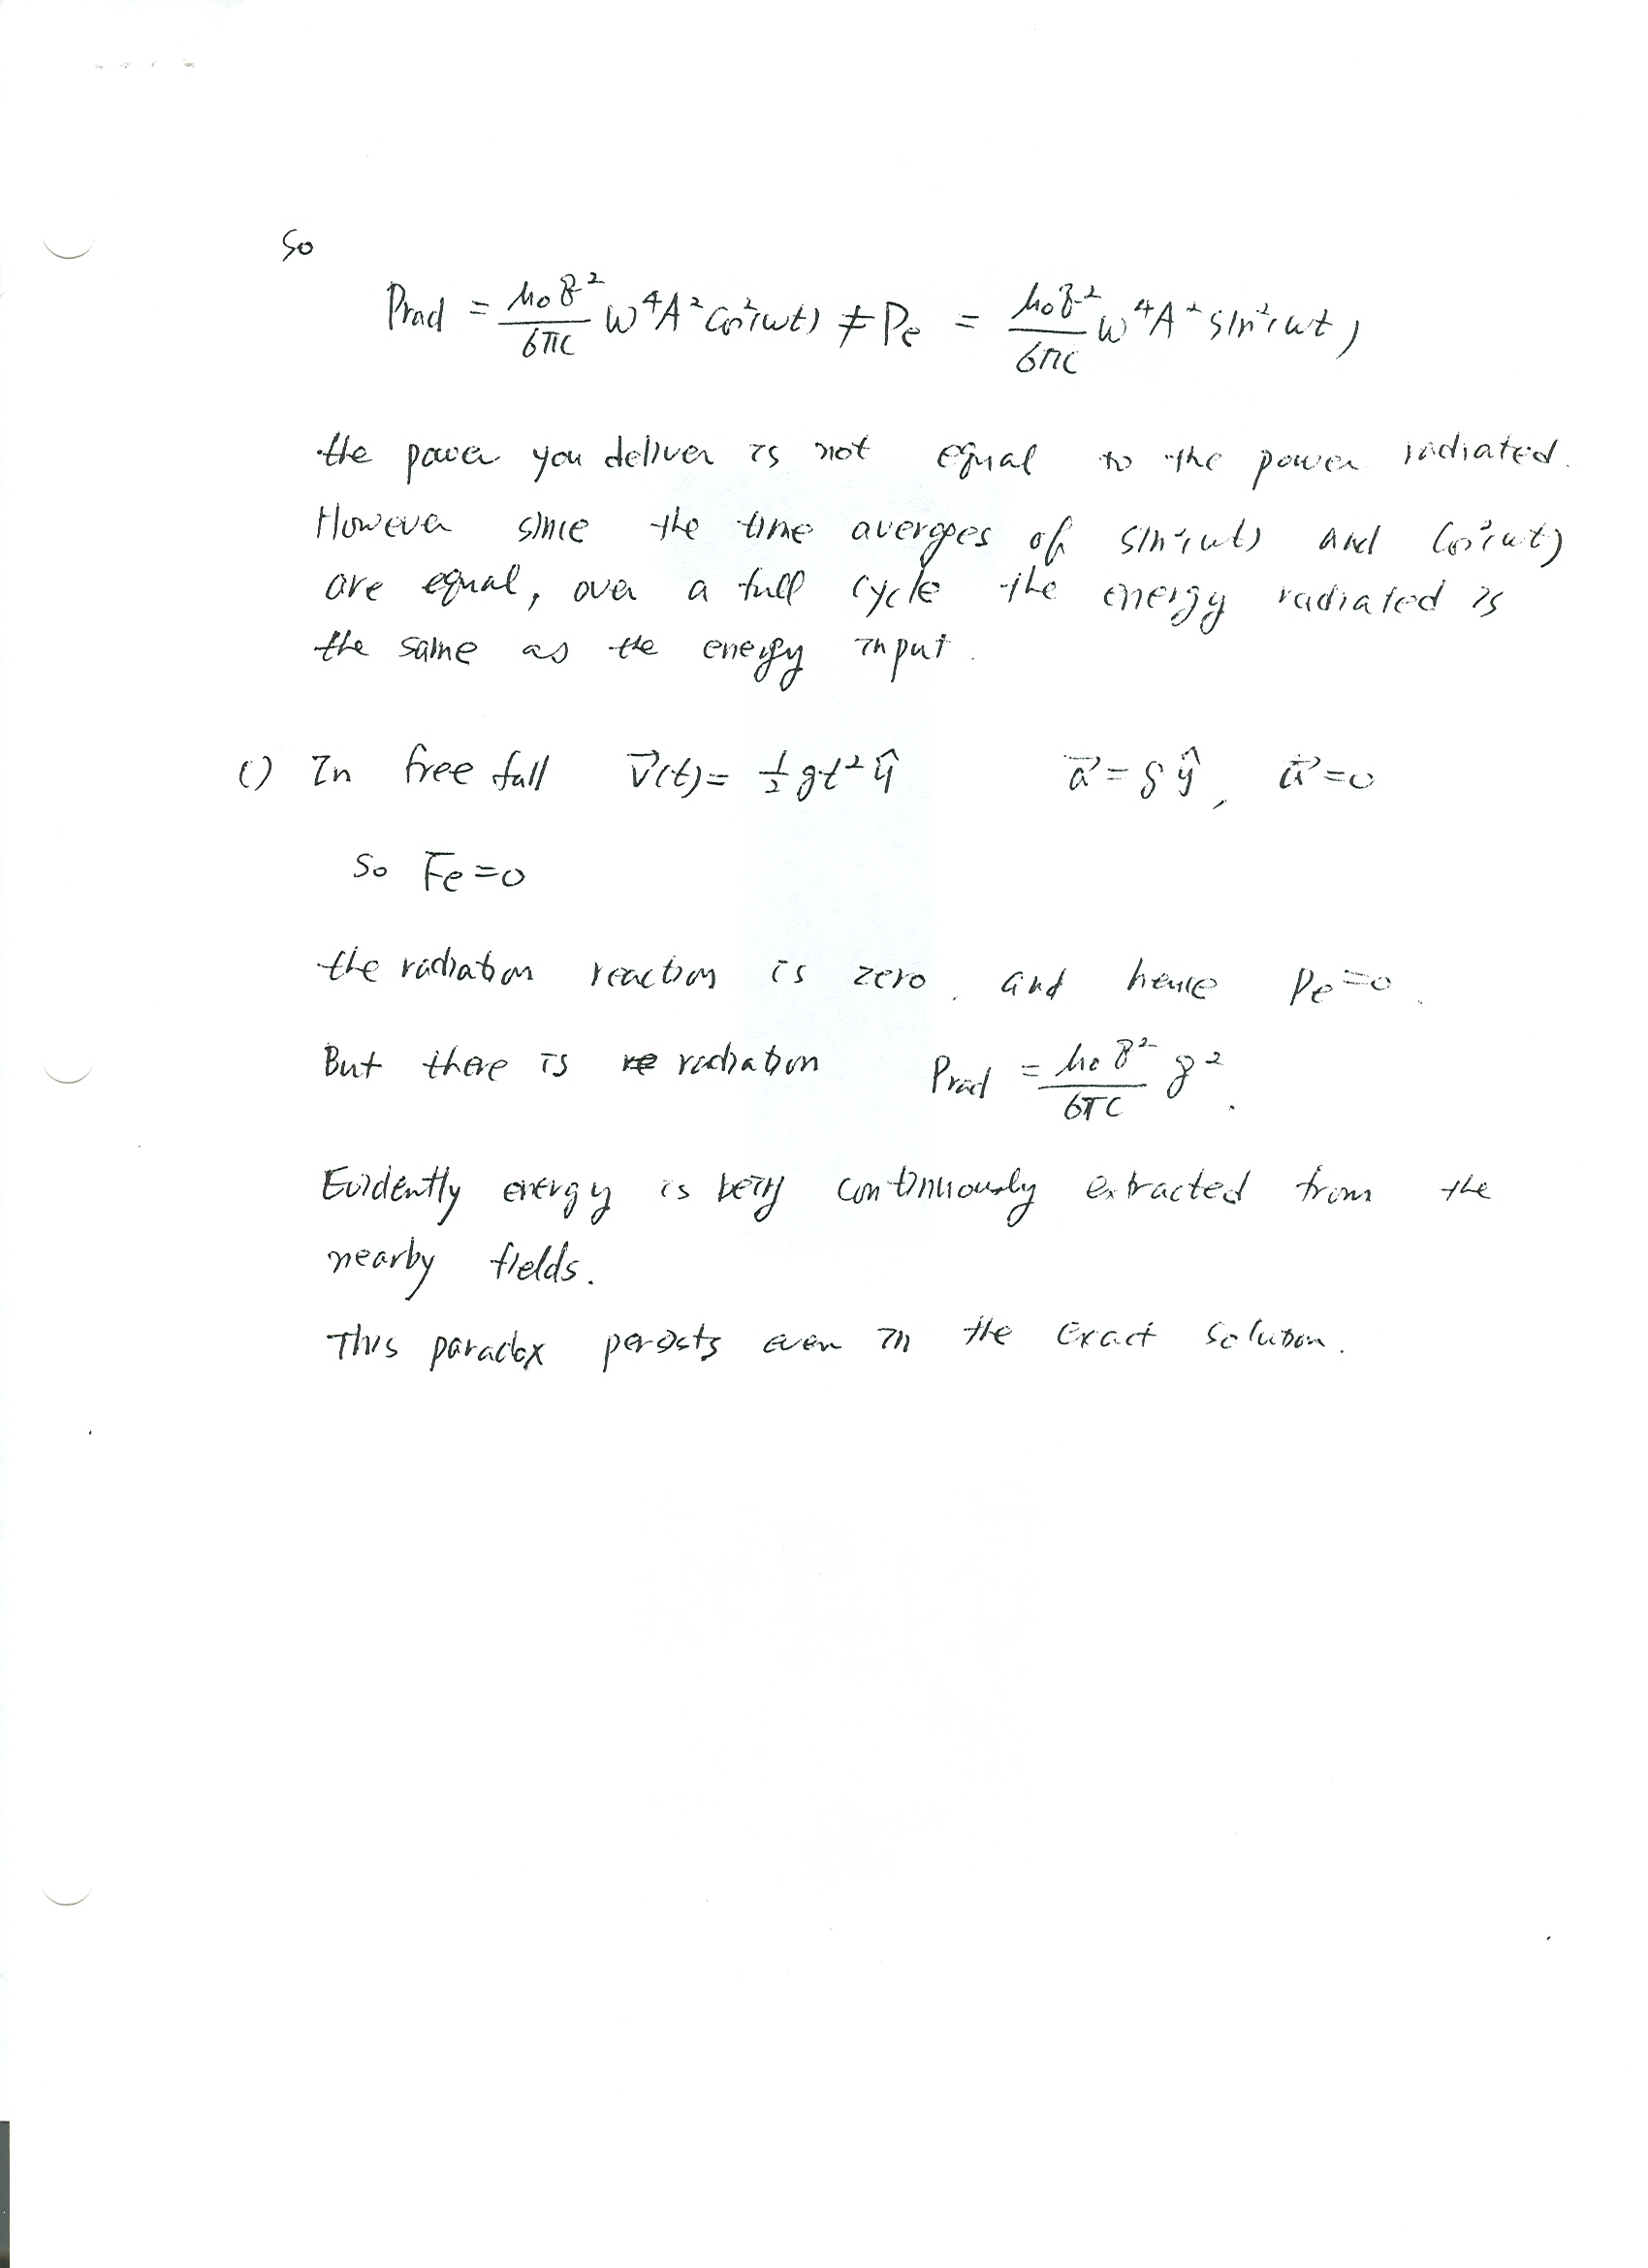 So
Prad = μ₀q²/6πc ω⁴A² cos²(ωt) ≠ Pe = μ₀q²/6πc ω⁴A² sin²(ωt)
the power you deliver is not equal to the power radiated.
However since the time averges of sin²(ωt) and cos²(ωt)
are equal, over a full cycle the energy radiated is
the same as the energy input.
c) In free fall v⃗(t) = ½ gt² ŷ a⃗ = g ŷ, ȧ⃗ = 0
So Fe = 0
the radiation reaction is zero, and hence Pe = 0.
But there is radiation Prad = μ₀q²/6πc g².
Evidently energy is being continuously extracted from the
nearby fields.
This paradox persists even in the exact solution.